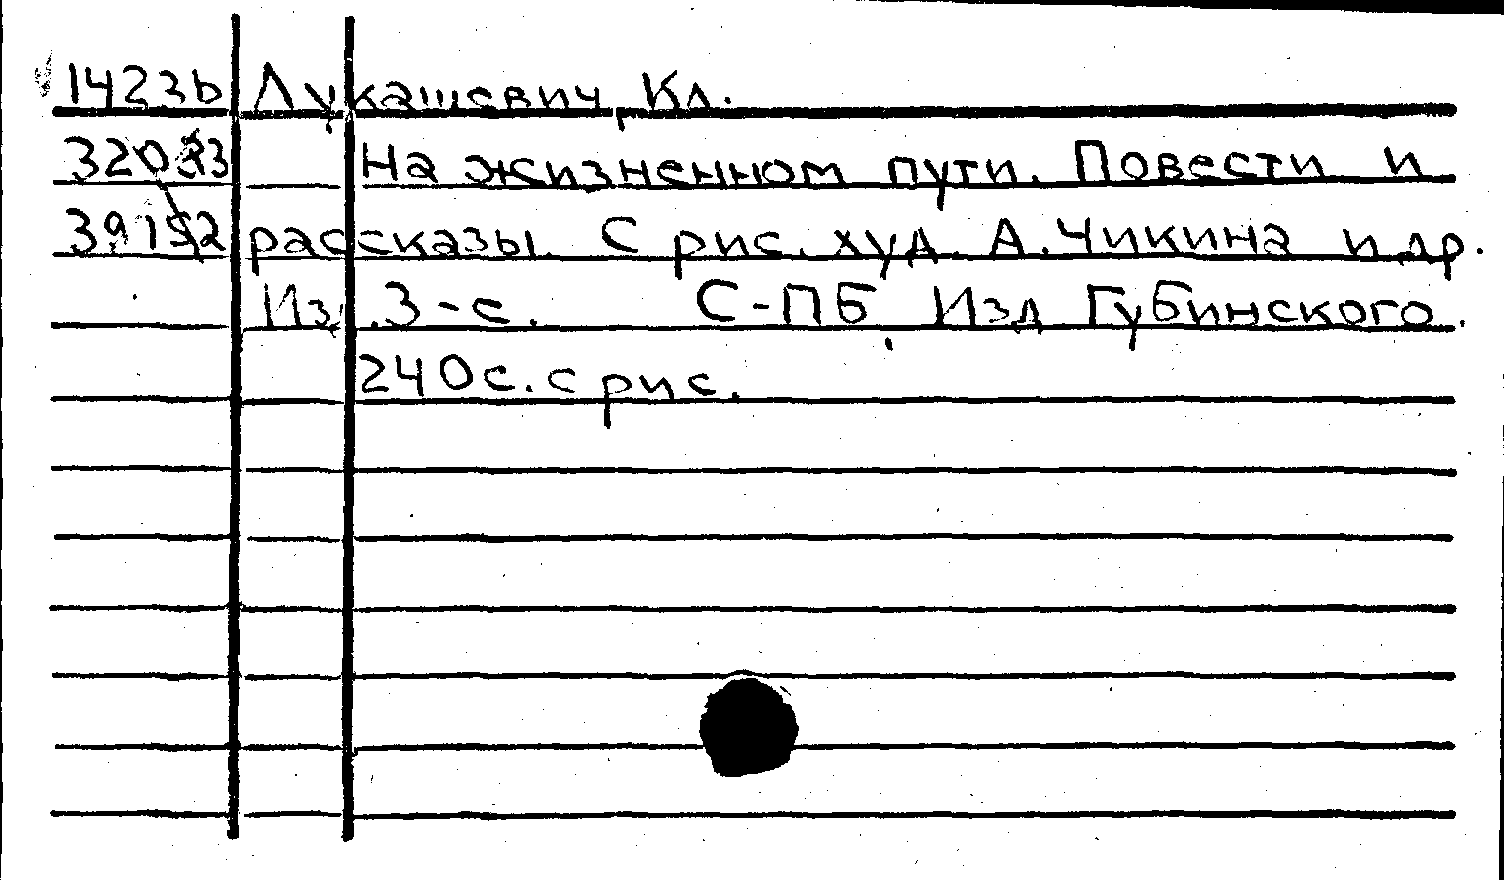 1423b Лукашевич, Кл.
На жизненном пути. Повести и
рассказы. С рис. худ. А. Чикина и др.
Изд. 3-е. С-ПБ, Изд Губинского.
240с. с рис.